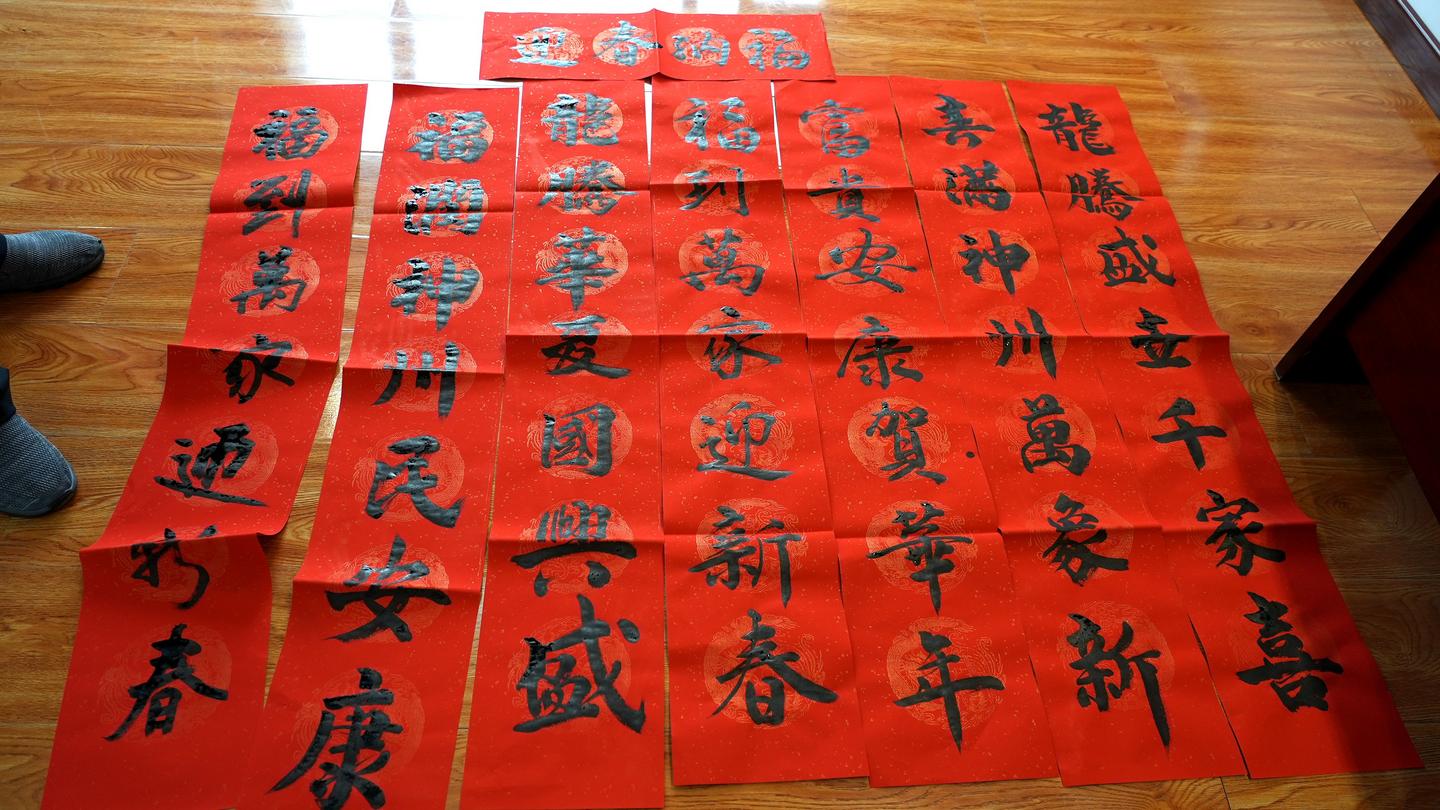 迎春纳福
龍騰盛世千家喜
春满神州萬象新
富貴安康賀華年
福到萬家迎新春
龍騰華夏國興盛
福满神州民安康
福到萬家迎新春